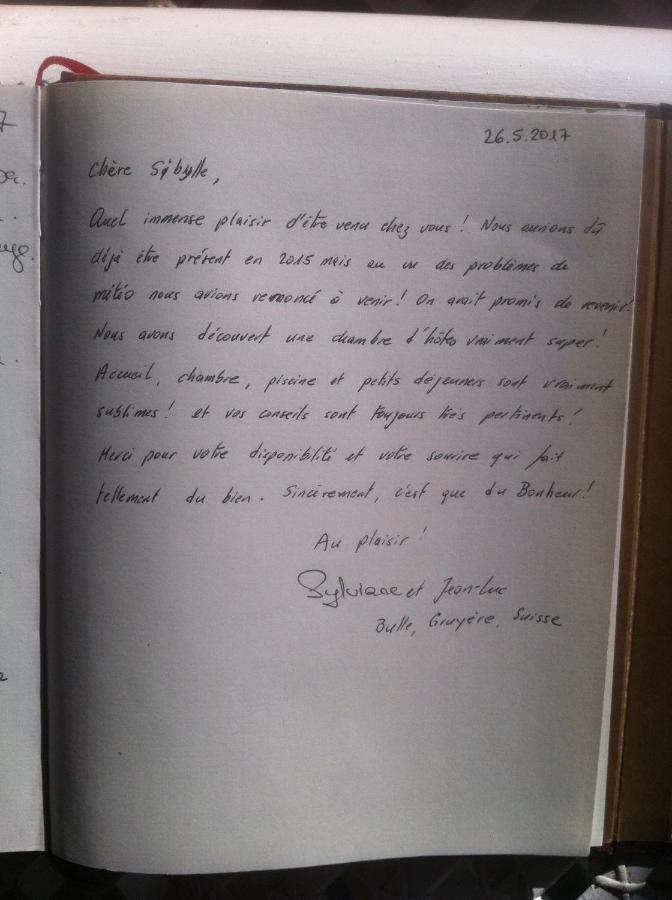 26.5.2017
Chère Sybylle,
Quel immense plaisir d'être venu chez vous ! Nous aurions dû
déjà être présent en 2015 mais au vu des problèmes de
météo nous avions renoncé à venir ! On avait promis de revenir!
Nous avons découvert une chambre d'hôtes vraiment super !
Accueil, chambre, piscine et petits déjeuners sont vraiment
sublimes ! et vos conseils sont toujours très pertinents !
Merci pour votre disponibilité et votre sourire qui fait
tellement du bien. Sincèrement, c'est que du Bonheur !
Au plaisir !
Sylviane et Jean-Luc
Bulle, Gruyère, Suisse